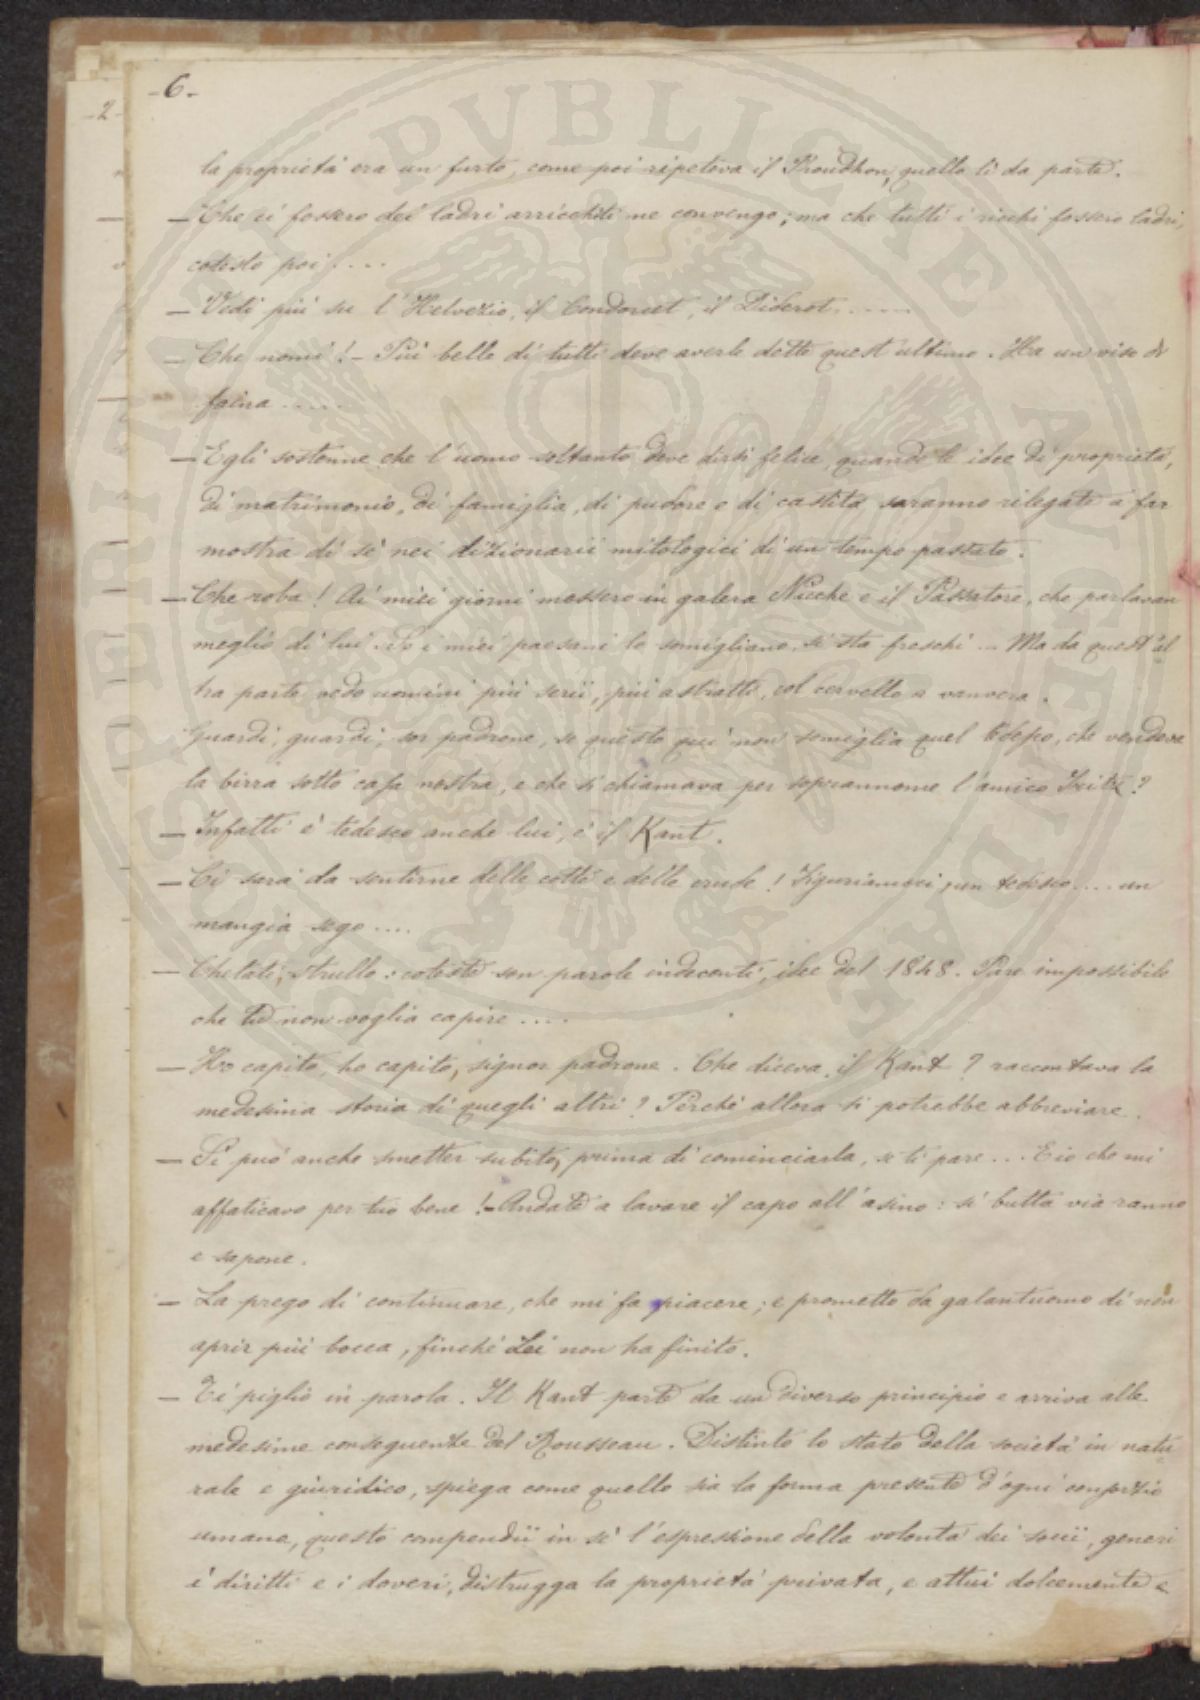 -6-
-2-
la proprietà era un furto, come poi ripeteva il Proudhon, quello lì da parte.
— Che ci fossero dei ladri arricchiti ne convengo; ma che tutti i ricchi fossero ladri,
cotesto poi ....
— Vedi più su l'Helvezio, il Condorcet, il Diderot .....
— Che nomi! – Più belle di tutti deve averle dette quest'ultimo. Ha un viso di
faina .....
— Egli sostenne che l'uomo soltanto deve dirsi felice, quando le idee di proprietà,
di matrimonio, di famiglia, di pudore e di castità saranno rilegate a far
mostra di sè nei dizionarii mitologici di un tempo passato.
— Che roba! Ai miei giorni messero in galera Nicche e il Passatore, che parlavan
meglio di lui. Se i miei paesani lo somigliano, si sta freschi... Ma da quest'al
tra parte vedo uomini più serii, più astratti, col cervello a vanvera.
Guardi, guardi, sor padrone, se questo qui non somiglia quel tedesco, che vendeva
la birra sotto casa nostra, e che si chiamava per soprannome l'amico Fritz?
— Infatti è tedesco anche lui, è il Kant.
— Ci sarà da sentirne delle cotte e delle crude! Figuriamoci, un tedesco.... un
mangia sego ....
— Chetati, strullo: coteste son parole indecenti, idee del 1848. Pare impossibile
che tu non voglia capire ....
— Ho capito, ho capito, signor padrone. Che diceva il Kant? raccontava la
medesima storia di quegli altri? Perchè allora si potrebbe abbreviare.
— Si può anche smetter subito, prima di cominciarla, se ti pare... E io che mi
affaticavo per tuo bene! – Andate a lavare il capo all'asino: si butta via ranno
e sapone.
— La prego di continuare, che mi fa piacere; e prometto da galantuomo di non
aprir più bocca, finchè Lei non ha finito.
— Ti piglio in parola. Il Kant parte da un diverso principio e arriva alle
medesime conseguenze del Rousseau. Distinto lo stato della società in natu
rale e giuridico, spiega come quello sia la forma presente d'ogni consorzio
umano, questo compendii in sè l'espressione della volontà dei socii, generi
i diritti e i doveri, distrugga la proprietà privata, e attui dolcemente e